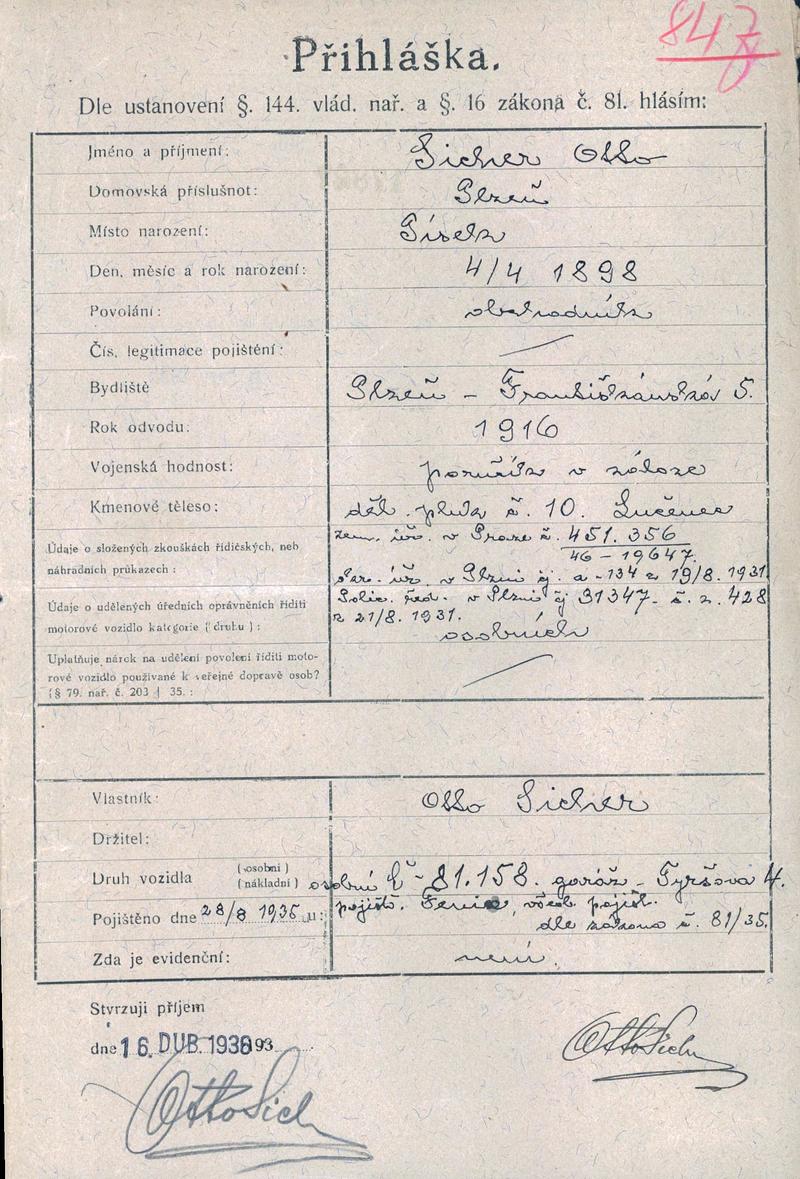 847
Přihláška.
Dle ustanovení §. 144. vlád. nař. a §. 16 zákona č. 81. hlásím:
Jméno a příjmení: Sicher Otto
Domovská příslušnot: Plzeň
Místo narození: Písek
Den, měsíc a rok narození: 4/4 1898
Povolání: obchodník
Čís, legitimace pojištění:
Bydliště Plzeň - Františkánská 5.
Rok odvodu: 1916
Vojenská hodnost: poručík v záloze
Kmenové těleso: děl. pluk č. 10. Lučenec
Údaje o složených zkouškách řídičských, neb
náhradních průkazech:
zem. úř. v Praze č. 451.356
46-19647.
v Plzni čj. a-134 z 19/8. 1931
Údaje o udělených úředních oprávněních říditi
motorové vozidlo kategorie (druhu):
Polic. řed. v Plzni čj 31347- č. z. 428
z 21/8. 1931.
osobních
Uplatňuje nárok na udělení povolení říditi moto-
rové vozidlo používané k veřejné dopravě osob?
(§ 79. nař. č. 203 | 35.:
Vlastník: Otto Sicher
Držitel:
Druh vozidla (osobní) (nákladní) osobní Č-81.158. garáž - Tyršova 4.
Pojištěno dne 28/8 1935 u: pojišť. Fenix, všeob. pojišť.
dle zákona č. 81/35.
Zda je evidenční: není.
Stvrzuji příjem
dne 16. DUB. 1936 93
Otto Sicher
Otto Sicher